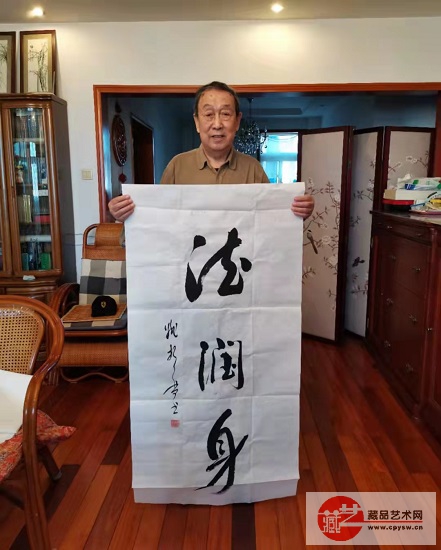 德润身
藏品艺术网
www.cpysw.cn